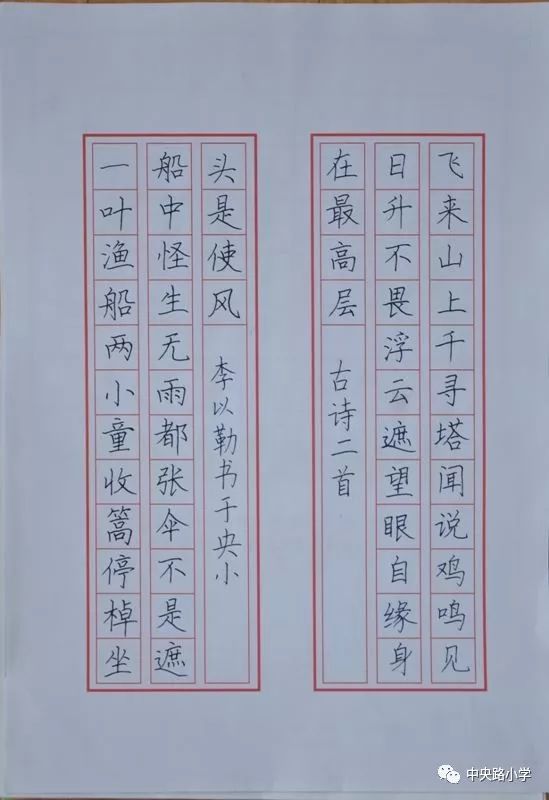 飞来山上千寻塔闻说鸡鸣见
日升不畏浮云遮望眼自缘身
在最高层
古诗二首
一叶渔船两小童收篙停棹坐
船中怪生无雨都张伞不是遮
头是使风
李以勒书于央小
中央路小学